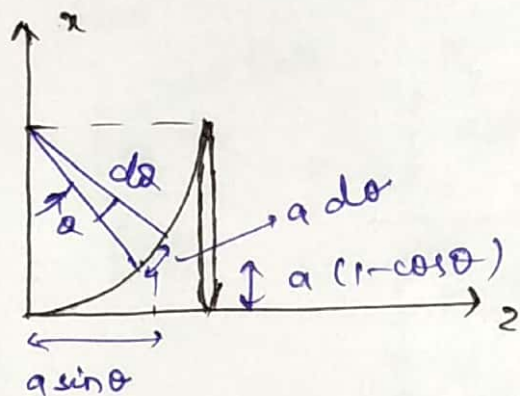 x
dθ
θ
a dθ
a (1-cosθ)
z
a sinθ